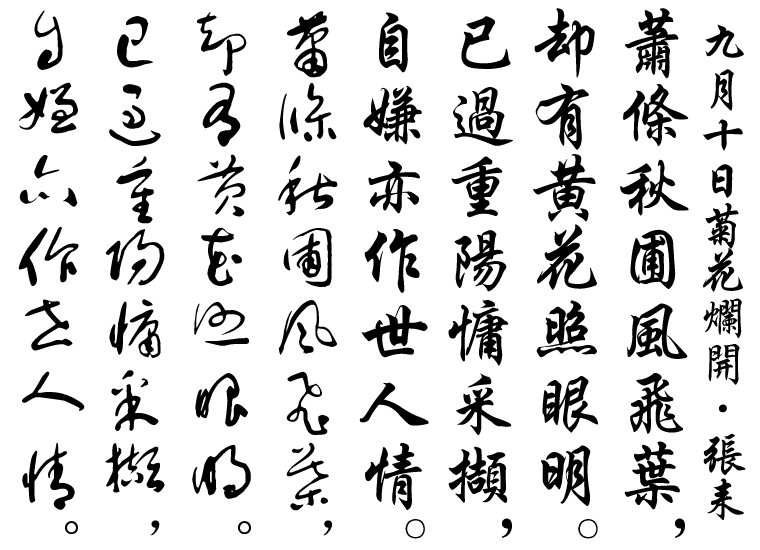 九月十日菊花爛開・張耒
蕭條秋圃風飛葉，
却有黃花照眼明。
已過重陽慵采擷，
自嫌亦作世人情。
蕭條秋圃風飛葉，
却有黃花照眼明。
已過重陽慵采擷，
自嫌亦作世人情。